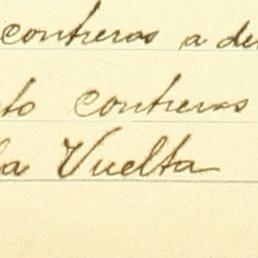 contreras a de
to contreras
la Vuelta